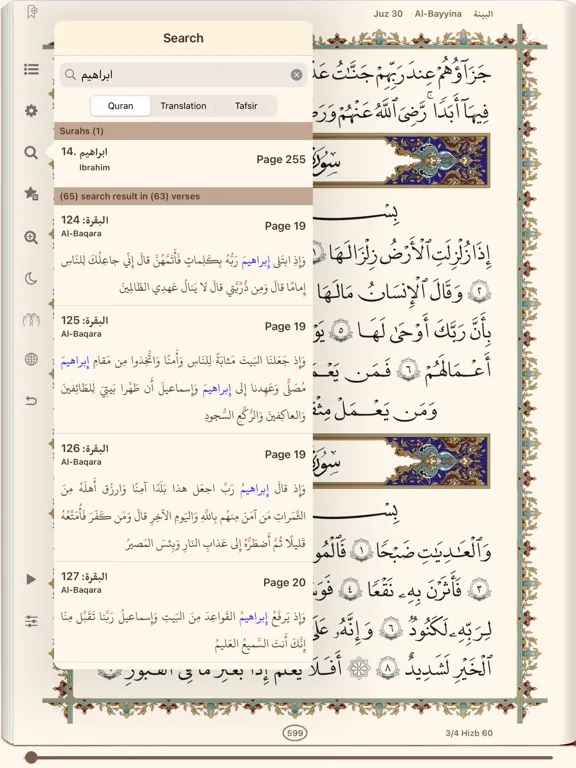 Juz 30 Al-Bayyina البينة
Search
ابراهيم
Quran Translation Tafsir
Surahs (1)
14. ابراهيم Page 255
Ibrahim
(65) search result in (63) verses
البقرة: 124 Page 19
Al-Baqara
وَإِذِ ابتَلىٰ إِبراهيمَ رَبُّهُ بِكَلِماتٍ فَأَتَمَّهُنَّ قالَ إِنّي جاعِلُكَ لِلنّاسِ
إِمامًا قالَ وَمِن ذُرِّيَّتي قالَ لا يَنالُ عَهدِي الظّالِمينَ
البقرة: 125 Page 19
Al-Baqara
وَإِذ جَعَلنَا البَيتَ مَثابَةً لِلنّاسِ وَأَمنًا وَاتَّخِذوا مِن مَقامِ إِبراهيمَ
مُصَلًّى وَعَهِدنا إِلىٰ إِبراهيمَ وَإِسماعيلَ أَن طَهِّرا بَيتِيَ لِلطّائِفينَ
وَالعاكِفينَ وَالرُّكَّعِ السُّجودِ
البقرة: 126 Page 19
Al-Baqara
وَإِذ قالَ إِبراهيمُ رَبِّ اجعَل هٰذا بَلَدًا آمِنًا وَارزُق أَهلَهُ مِنَ
الثَّمَراتِ مَن آمَنَ مِنهُم بِاللَّهِ وَاليَومِ الآخِرِ قالَ وَمَن كَفَرَ فَأُمَتِّعُهُ
قَليلًا ثُمَّ أَضطَرُّهُ إِلىٰ عَذابِ النّارِ وَبِئسَ المَصيرُ
البقرة: 127 Page 20
Al-Baqara
وَإِذ يَرفَعُ إِبراهيمُ القَواعِدَ مِنَ البَيتِ وَإِسماعيلُ رَبَّنا تَقَبَّل مِنّا
إِنَّكَ أَنتَ السَّميعُ العَليمُ
جَزَآؤُهُمْ عِندَ رَبِّهِمْ جَنَّـٰتُ
فِيهَآ أَبَدًا ۖ رَّضِىَ ٱللَّهُ عَنْهُمْ
إِذَا زُلْزِلَتِ ٱلْأَرْضُ زِلْزَالَهَا ١
٢ وَقَالَ ٱلْإِنسَـٰنُ مَالَهَا
بِأَنَّ رَبَّكَ أَوْحَىٰ لَهَا ٥
أَعْمَـٰلَهُمْ ٦ فَمَن
وَمَن يَعْمَلْ
وَٱلْعَـٰدِيَـٰتِ ضَبْحًا ١
٣ فَأَثَرْنَ بِهِۦ نَقْعًا ٤
لِرَبِّهِۦ لَكَنُودٌ ٦ وَإِنَّهُۥ
ٱلْخَيْرِ لَشَدِيدٌ ٨ أَفَلَا يَعْلَمُ إِذَا بُعْثِرَ مَا فِى ٱلْقُبُورِ
599 3/4 Hizb 60